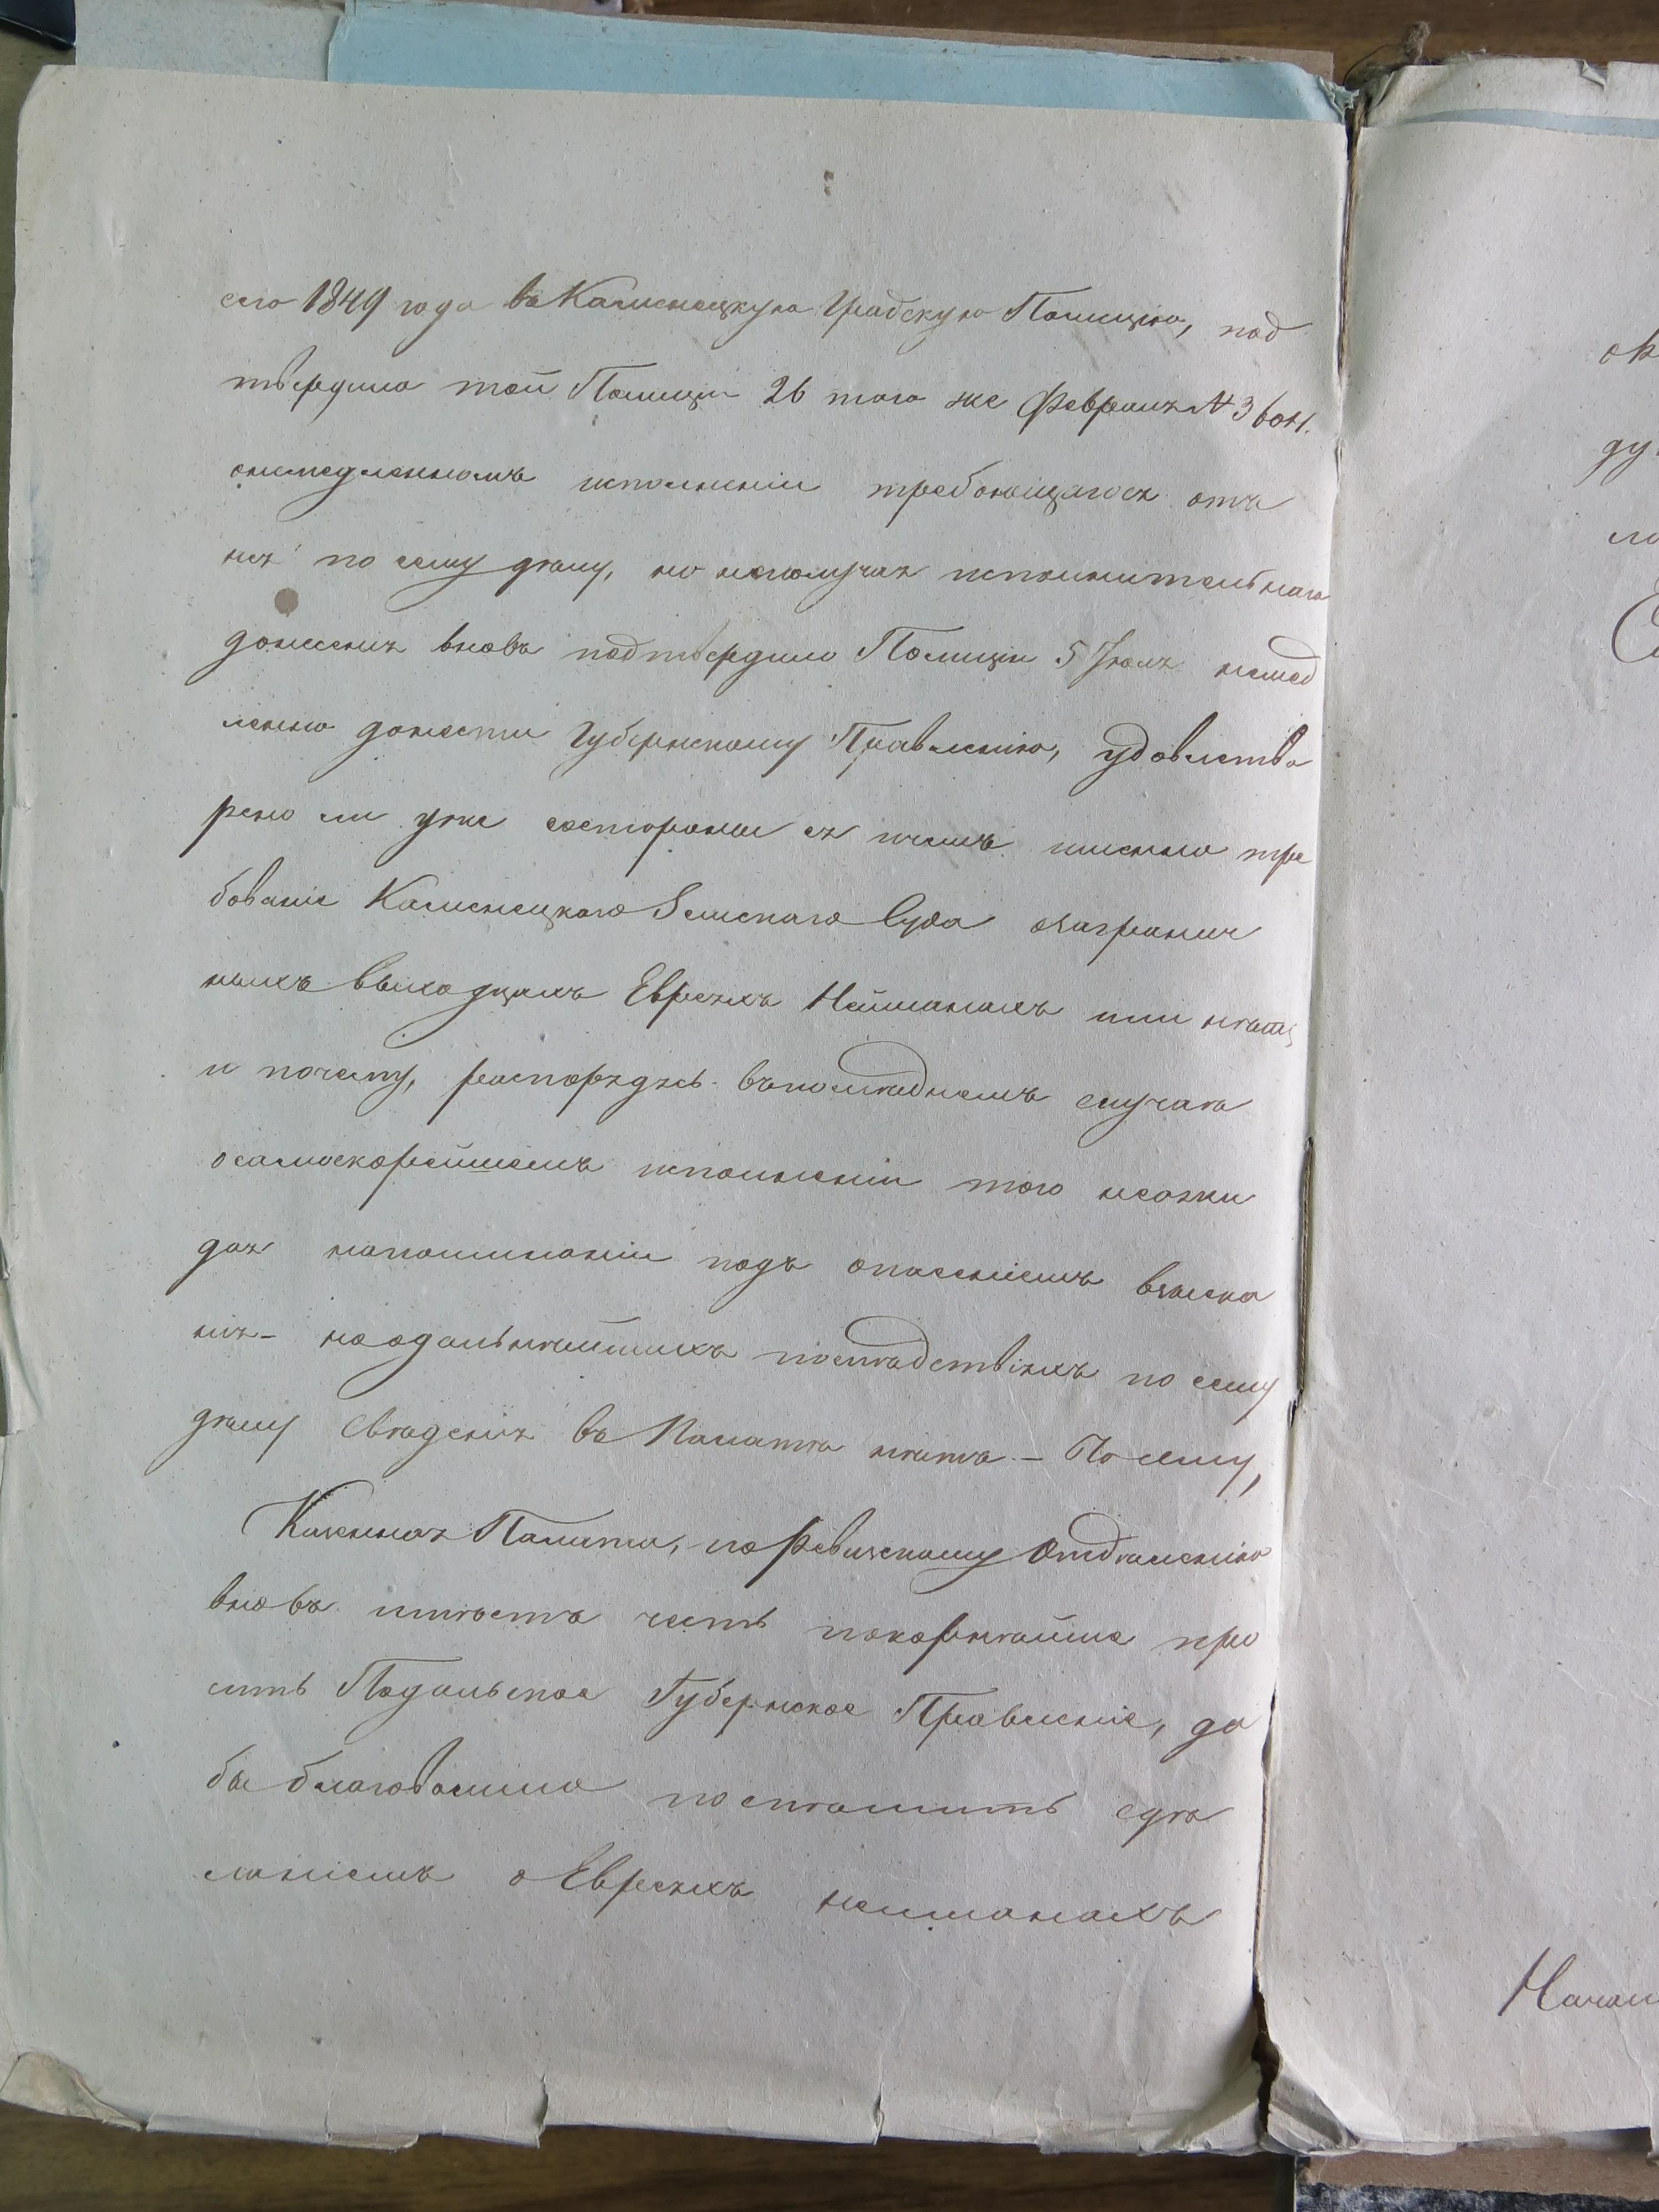 сего 1849 года въ Каменецкую Градскую Полицію, под
твердило той Полиціи 26 того же Февраля №
онемедленномъ исполненіи требующагося отъ
нея по сему дѣлу, но неполучая исполнительнаго
донесенія вновь подтвердило Полиціи 5 Іюля немед
ленно донести Губернскому Правленію, удовлетво
рено ли уже состороны ея именно тре
бованіе Каменецкаго Земскаго Суда озагранич
ныхъ выходцахъ Евреяхъ Нейманахъ или нѣтъ
и почему, распорядясь впослѣднемъ случаѣ
осамоскорейшемъ исполненіи того неожи
дая напоминаніи подъ опасеніемъ взыска
нія – но одальнѣйшихъ послѣдствіяхъ по сему
дѣлу Свѣденія въ Палатѣ нѣтъ. – По сему,
Казенная Палата, по Ревизскому Отдѣленію
вновь имѣетъ честь покорнѣйше про
сить Подольское Губернское Правленіе, да
бы благоволило поспѣшить сдѣ
ланіемъ о Евреяхъ нейманахъ
ок
ду
ло
Начал